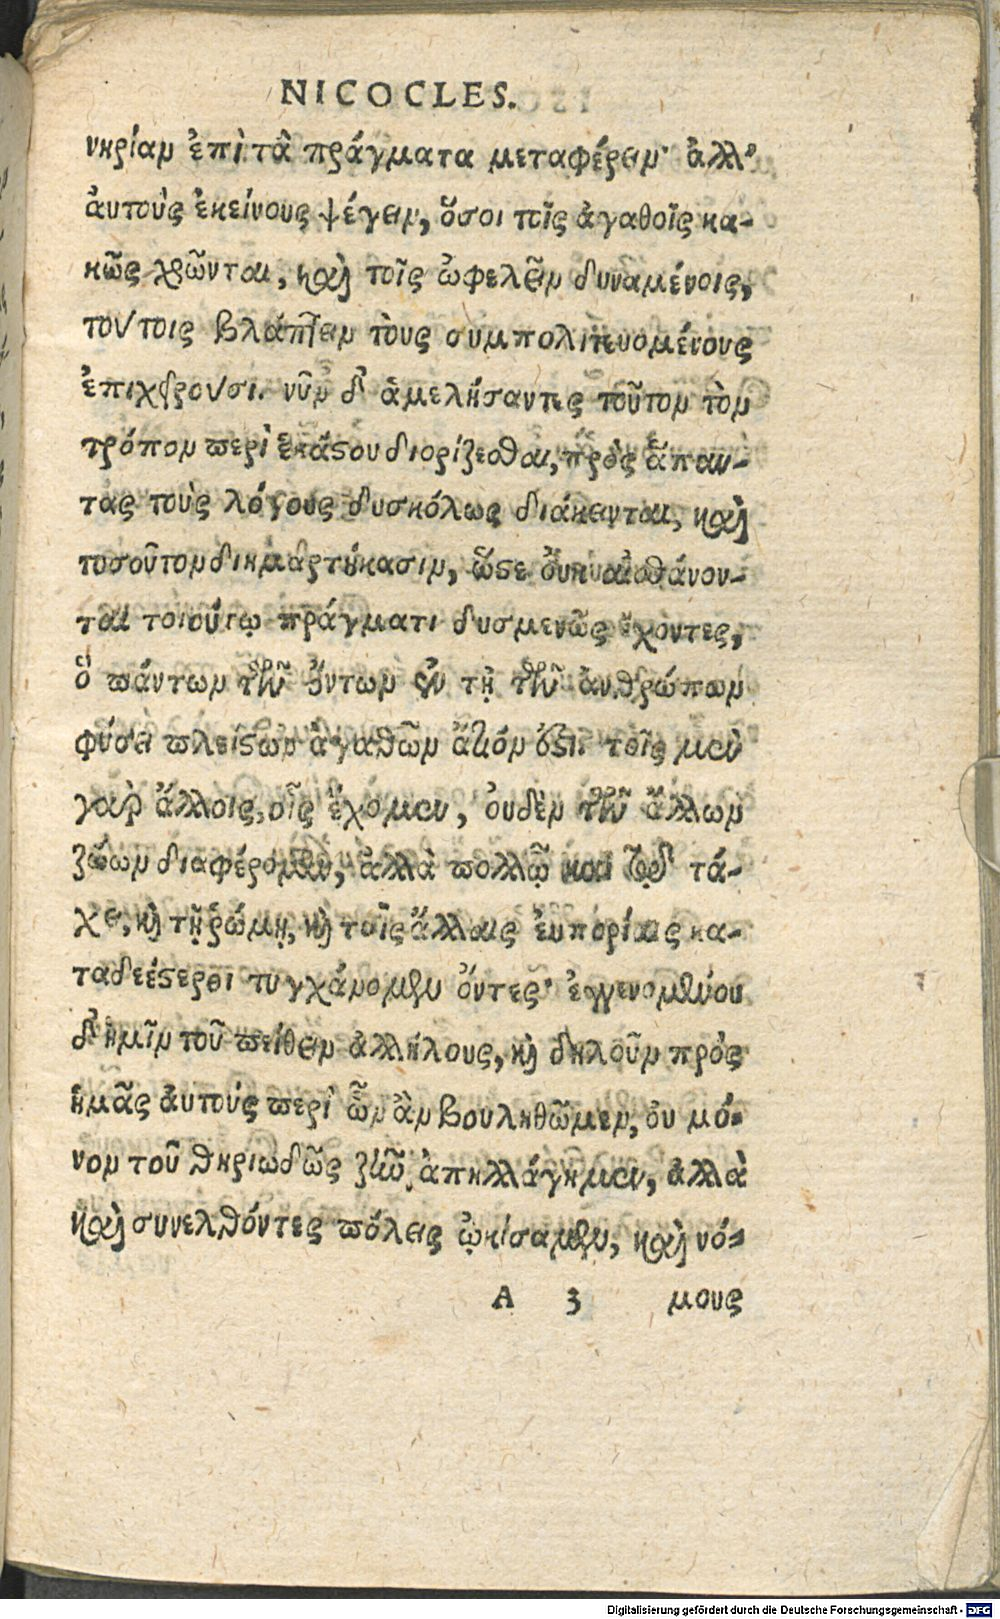 NICOCLES.
νηρίαν ἐπὶ τὰ πράγματα μεταφέρειν· ἀλλ'
ἀυτοὺς ἐκείνους ψέγειν, ὅσοι τοῖς ἀγαθοῖς κα-
κῶς χρῶνται, καὶ τοῖς ὠφελεῖν δυναμένοις,
τούτοις βλάπτειν τοὺς συμπολιτευομένους
ἐπιχειροῦσι. νῦν δ' ἀμελήσαντες τοῦτον τὸν
τρόπον περὶ ἑκάστου διορίζεσθαι, πρὸς ἅπαν-
τας τοὺς λόγους δυσκόλως διάκεινται, καὶ
τοσοῦτον διημαρτήκασιν, ὥστε ὀυκ αἰσθάνον-
ται τοιούτῳ πράγματι δυσμενῶς ἔχοντες,
ὃ πάντων τῶν ὄντων ἐν τῇ τῶν ἀνθρώπων
φύσει πλείστων ἀγαθῶν ἄιτιόν ἐστι. τοῖς μὲν
γὰρ ἄλλοις, οἷς ἔχομεν, ὀυδὲν τῶν ἄλλων
ζώων διαφέρομεν, ἀλλὰ πολλῷ καὶ τῷ τά-
χει, καὶ τῇ ῥώμῃ, καὶ ταῖς ἄλλαις ἐυπορίαις κα-
ταδεέστεροι τυγχάνομεν ὄντες· ἐγγενομένου
δ' ἡμῖν τοῦ πείθειν ἀλλήλους, καὶ δηλοῦν πρὸς
ἡμᾶς ἀυτοὺς περὶ ὧν ἂν βουληθῶμεν, ὀυ μό-
νον τοῦ θηριωδῶς ζῆν ἀπηλλάγημεν, ἀλλὰ
καὶ συνελθόντες πόλεις ᾠκίσαμεν, καὶ νό-
A 3 μους
Digitalisierung gefördert durch die Deutsche Forschungsgemeinschaft - DFG